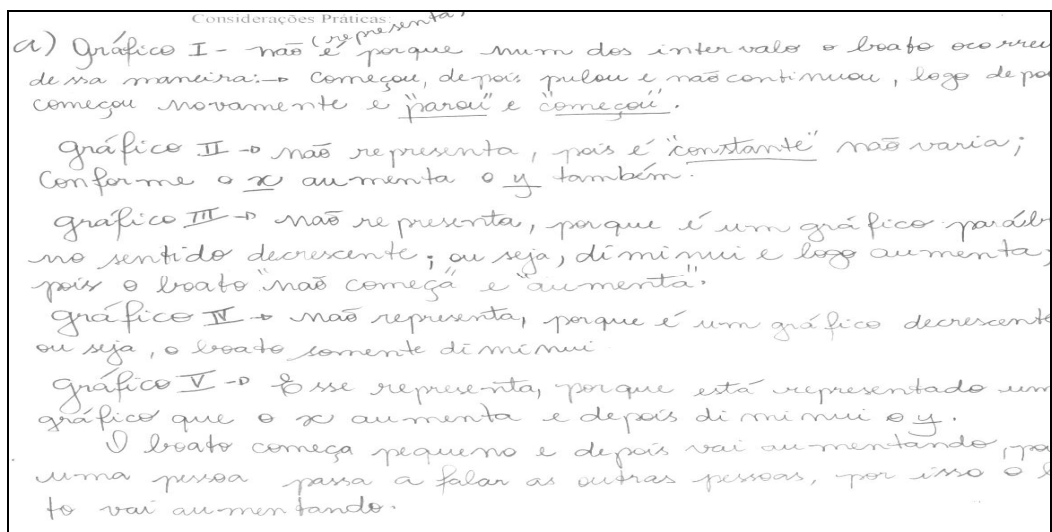 Considerações Práticas:
a) Gráfico I - não é (representa, porque num dos intervalo o boato ocorreu
dessa maneira: → começou, depois pulou e não continuou, logo depo
começou novamente e "parou" e "começou".
gráfico II → não representa, pois é "constante" não varia;
Conforme o x aumenta o y também.
gráfico III → não representa, porque é um gráfico parább
no sentido decrescente; ou seja, diminui e logo aumenta;
pois o boato "não começa" e "aumenta".
gráfico IV → não representa, porque é um gráfico decrescente
ou seja, o boato somente diminui
gráfico V → Esse representa, porque está representado um
gráfico que o x aumenta e depois diminui o y.
O boato começa pequeno e depois vai aumentando, po
uma pessoa passa a falar as outras pessoas, por isso o b
to vai aumentando.